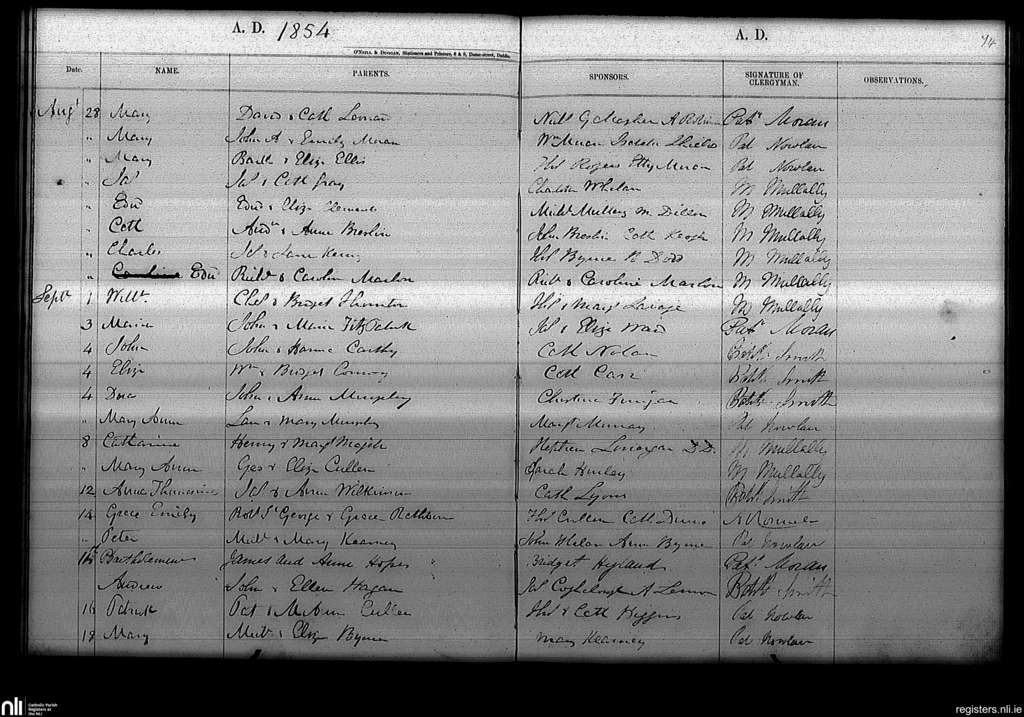 A. D. 1854
A. D.
94
O'NEILL & DUGGAN, Stationers and Printers, Dame-street, Dublin.
Date. NAME. PARENTS. SPONSORS. SIGNATURE OF CLERGYMAN. OBSERVATIONS.
Augt 28 Mary David & Cath Lennan Gallagher Patk Moran
" Mary John A & Emily Moran Wm Moran Pat Nowlan
" Mary Barth & Eliza Ellis Thos Rogers Moran Pat Nowlan
" Jas Jas & Cath Gray Charlotte Whelan M Mullally
" Edwd Edwd & Eliza Clements Michl Mullens M Dillon M Mullally
" Cath Andw & Anne Breslin John Breslin Cath Keogh M Mullally
" Charles Jos & Jane Kenny Thos Byrne M Mullally
" Caroline Edw Richd & Caroline Marlow Richd & Caroline Marlow M Mullally
Septr 1 Willm Chas & Bridget Thornton Thos & Margt M Mullally
3 Maria John & Maria FitzPatrick Jas & Eliza Ward Patk Moran
4 John John & Hanna Carthy Cath Nolan Robt Smith
4 Eliza Wm & Bridget Conroy Cath Robt Smith
4 Dora John & Anne Murphy Christina Finigan Robt Smith
" Mary Anne & Mary Murphy Margt Murray Pat Nowlan
8 Catharine Henry & Margt D.D. M Mullally
" Mary Anne Geo & Eliza Cullen Sarah M Mullally
12 Anna Jas & Anna Wilkinson Cath Lyons Robt Smith
14 Grace Emily Robt St George & Grace Rathborn Thos Cullen Cath
" Peter Michl & Mary Kearney John Whelan Anne Byrne Pat Nowlan
Bartholomew James and Anne Bridget Hyland Patk Moran
Andrew John & Ellen Hagan A Lennon Robt Smith
16 Patrick Pat & M Anne Cullen Thos & Cath Higgins Pat Nowlan
18 Mary Michl & Eliza Byrne Mary Kearney Pat Nowlan
nli Catholic Parish Registers at the NLI
registers.nli.ie